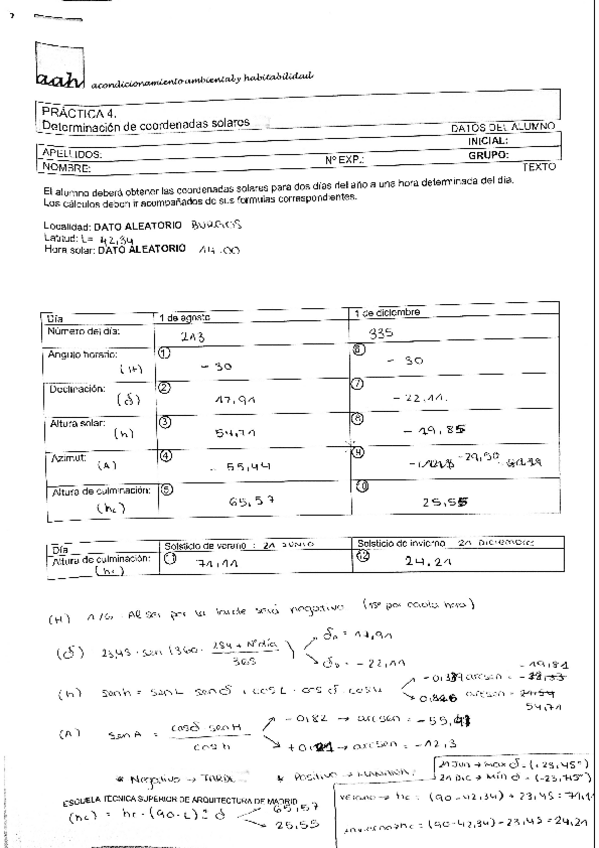 aah acondicionamiento ambiental y habitabilidad
PRÁCTICA 4.
Determinación de coordenadas solares
DATOS DEL ALUMNO
APELLIDOS: INICIAL:
NOMBRE: Nº EXP.: GRUPO:
TEXTO
El alumno deberá obtener las coordenadas solares para dos días del año a una hora determinada del día.
Los cálculos deben ir acompañados de sus formulas correspondientes.
Localidad: DATO ALEATORIO BURGOS
Latitud: L= 42,34
Hora solar: DATO ALEATORIO 14.00
Día 1 de agosto 1 de diciembre
Número del día: 213 335
Angulo horario: (H) ① - 30 ⑥ - 30
Declinación: (δ) ② 17,91 ⑦ - 22.11.
Altura solar: (h) ③ 54,71 ⑧ - 19,85
Azimut: (A) ④ - 55,44 ⑨ -29,50
Altura de culminación: (hc) ⑤ 65,57 ⑩ 25,55
Día Solsticio de verano : 21 JUNIO Solsticio de invierno 21 Diciembre
Altura de culminación: (hc) ⑪ 71,11 ⑫ 24.21
(H) 1/6. Al ser por la tarde será negativo (15º por cada hora)
(δ) 23,45 · sen (360 · 284 + Nºdía / 365) δA = 17,91
δD = -22,11
(h) senh = senL · senδ + cosL · cosδ · cosH -0,339 arcsen = -19,81
0,816 arcsen = 54,71
(A) senA = cosδ senH / cosh -0,82 → arcsen = -55,41
+0,21 → arcsen = -12,3
* Negativo → TARDE * Positivo → MAÑANA.
21 Jun → max δ = (+23,45º)
21 DIC → Mín δ = (-23,45º)
ESCUELA TECNICA SUPERIOR DE ARQUITECTURA DE MADRID
(hc) = hc = (90-L) ± δ 65,57
25,55
verano → hc = (90-42,34) + 23,45 = 71,11
invierno → hc = (90-42,34) - 23,45 = 24,21